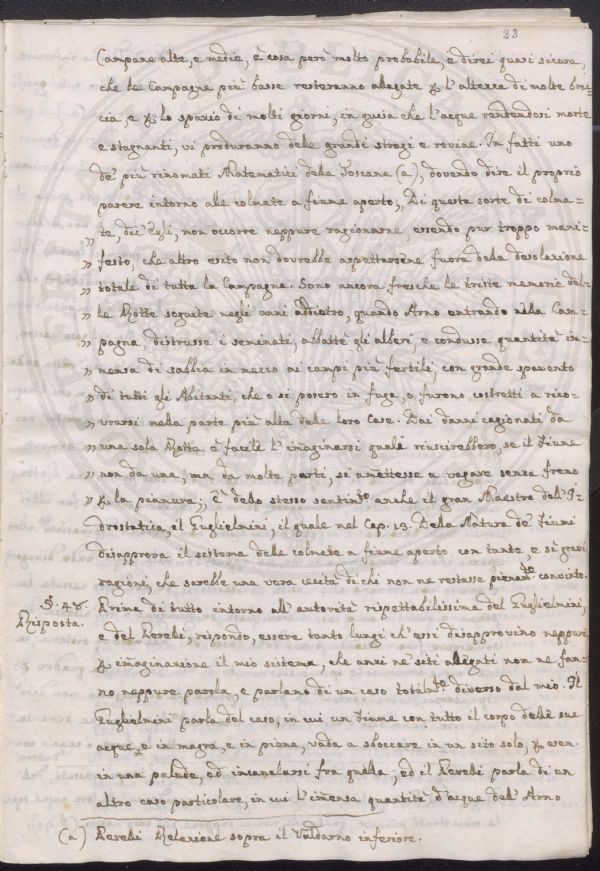 23
Campane alte, e medie, è cosa però molto probabile, e direi quasi sicura,
che le Campagne più basse resteranno allagate p l'altezza di molte brac-
cia, e p lo spazio di molti giorni, in guisa che l'acque rendendosi morte
e stagnanti, vi produranno delle grandi stragi e rovine. In fatti uno
de' più rinomati Matematici della Toscana (a), dovendo dire il proprio
parere intorno alle colmate a fiume aperto; „ Di questa sorte di colma-
„ te, dic' Egli, non occorre neppure ragionarne, essendo pur troppo mani-
„ festo, che altro esito non dovrebbe aspettarsene fuora della desolazione
„ totale di tutta la Campagna. Sono ancora fresche le triste memorie del-
„ le Rotte seguite negli anni addietro, quando Arno entrando nella Cam-
„ pagna, distrusse i seminati, abbattè gli alberi, e condusse quantità im-
„ mensa di sabbia in mezzo ai campi più fertili, con grande spavento
„ di tutti gli Abitanti, che o si posero in fuga, o furono costretti a rico-
„ vrarsi nella parte più alta delle loro Case. Dai danni cagionati da
„ una sola Rotta è facile l'imaginarsi quali riuscirebbero, se il Fiume
„ non da una, ma da molte parti, si amettesse a vagare senza freno
„ p la pianura; È dello stesso sentimto anche il gran Maestro dell'I-
drostatica, il Guglielmini, il quale nel Cap. 13. Della Natura de' Fiumi
disapprova il sistema delle colmate a fiume aperto con tante, e sì gravi
ragioni, che sarebbe una vera cecità di chi non ne restasse pienamte convinto.
§. 48. Prima di tutto intorno all'autorità rispettabilissima del Guglielmini,
Risposta. e del Perelli, rispondo, essere tanto lungi ch'essi disapprovino neppure
p imaginazione il mio sistema, che anzi ne' siti allegati non ne fan-
no neppure parola, e parlano di un caso totalmte diverso dal mio. Il
Guglielmini parla del caso, in cui un Fiume con tutto il corpo delle sue
acque, e in magra, e in piena, vada a sboccare in un sito solo, p esem.
in una palude, ed incanalarsi fra quella; ed il Perelli parla di un
altro caso particolare, in cui l'imensa quantità d'acque dell'Arno
(a) Perelli Relazione sopra il Valdarno inferiore.